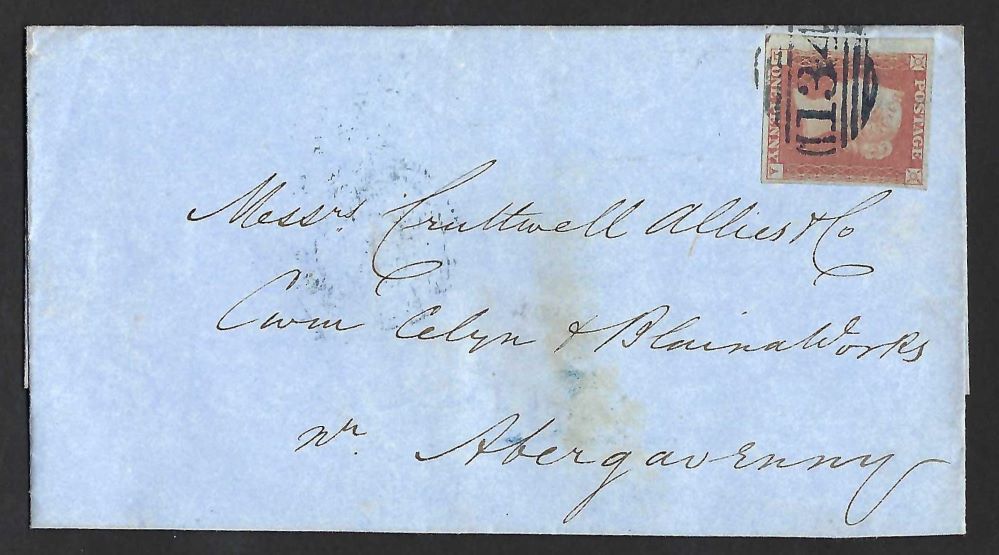 POSTAGE
134
ONE PENNY
A
Messrs. Cruttwell Allies & Co
Cwm Celyn & Blaina Works
nr. Abergavenny